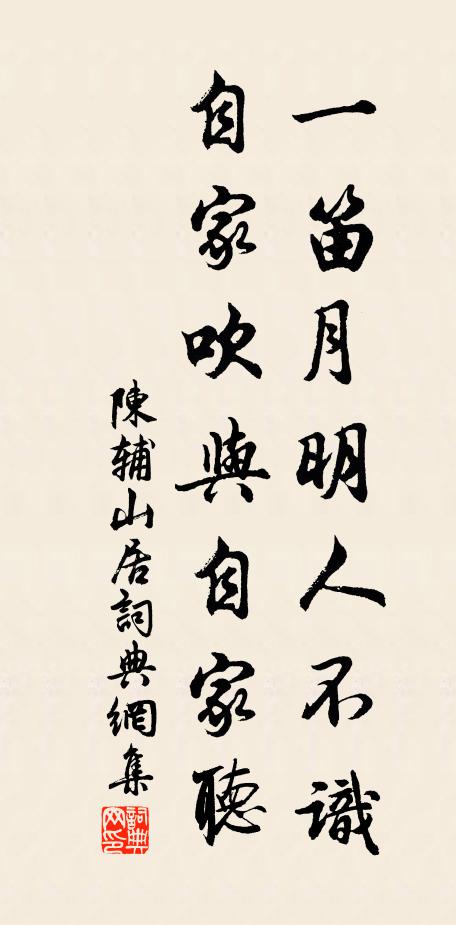 一笛月明人不識
自家吹與自家聽
陳輔山居詞典網集
詞典網印